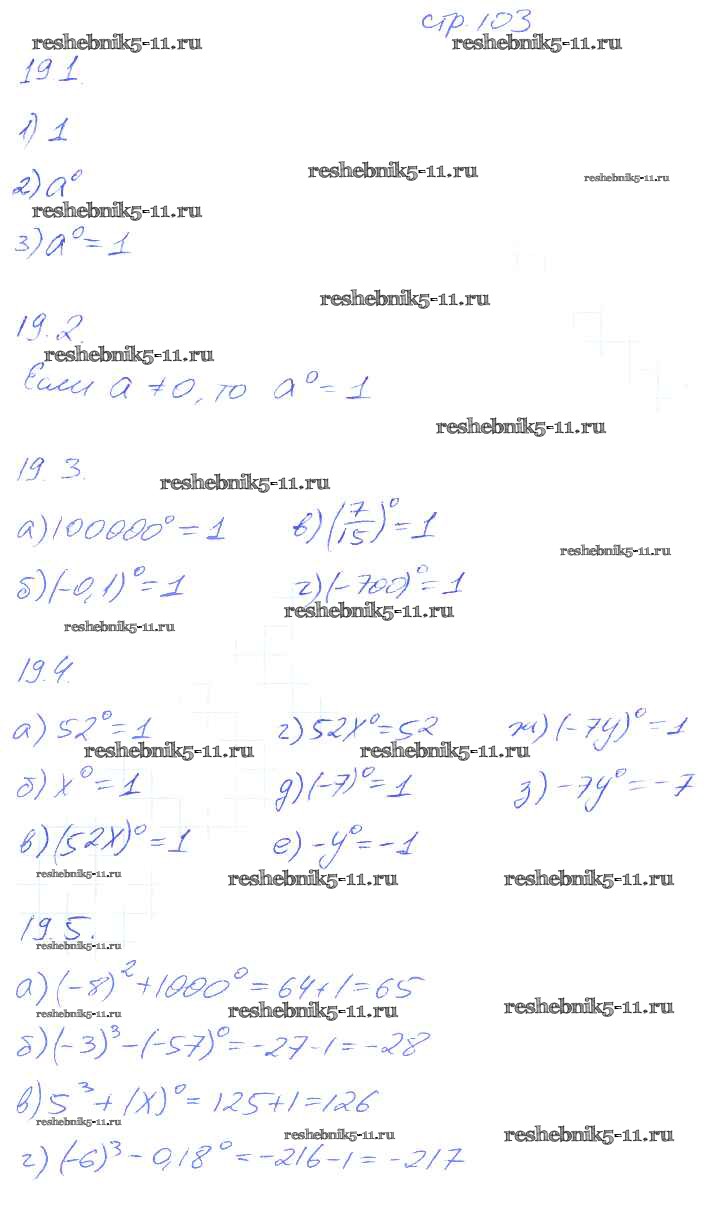 стр. 103
reshebnik5-11.ru reshebnik5-11.ru
19.1.
1) 1
reshebnik5-11.ru reshebnik5-11.ru
2) a⁰
reshebnik5-11.ru
3) a⁰ = 1
reshebnik5-11.ru
19.2.
reshebnik5-11.ru
Если a ≠ 0, то a⁰ = 1
reshebnik5-11.ru
19.3.
reshebnik5-11.ru
а) 100000⁰ = 1 в) (7/15)⁰ = 1
reshebnik5-11.ru
б) (-0,1)⁰ = 1 г) (-700)⁰ = 1
reshebnik5-11.ru
reshebnik5-11.ru
19.4.
а) 52⁰ = 1 г) 52x⁰ = 52 ж) (-7y)⁰ = 1
reshebnik5-11.ru reshebnik5-11.ru
б) x⁰ = 1 д) (-7)⁰ = 1 з) -7y⁰ = -7
в) (52x)⁰ = 1 е) -y⁰ = -1
reshebnik5-11.ru reshebnik5-11.ru reshebnik5-11.ru
19.5.
reshebnik5-11.ru
а) (-8)² + 1000⁰ = 64 + 1 = 65
reshebnik5-11.ru reshebnik5-11.ru reshebnik5-11.ru
б) (-3)³ - (-57)⁰ = -27 - 1 = -28
в) 5³ + (x)⁰ = 125 + 1 = 126
reshebnik5-11.ru reshebnik5-11.ru reshebnik5-11.ru
г) (-6)³ - 0,18⁰ = -216 - 1 = -217